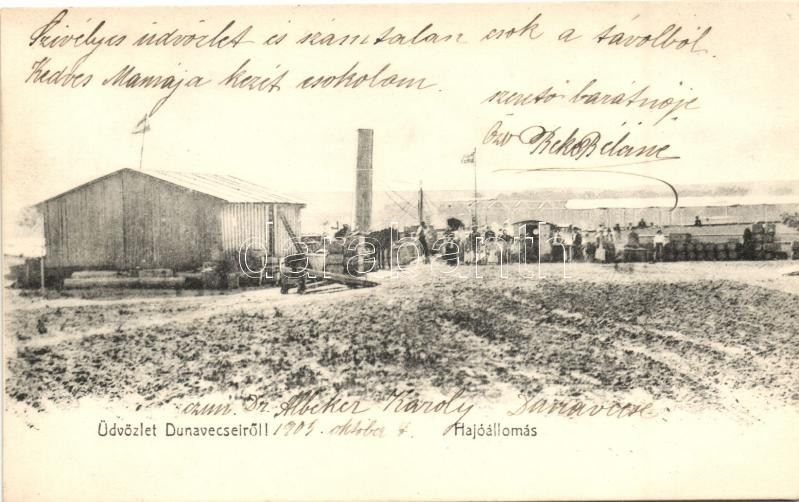 Szivélyes üdvözlet és számtalan csók a távolból.
Kedves Mamája kezét csokolom.
szerető barátnője
Özv Beke Béláné
darabanth
czim. Dr. Albeker Karoly Dunavecse
Üdvözlet Dunavecseiről! 1905. oktober 4. Hajóállomás